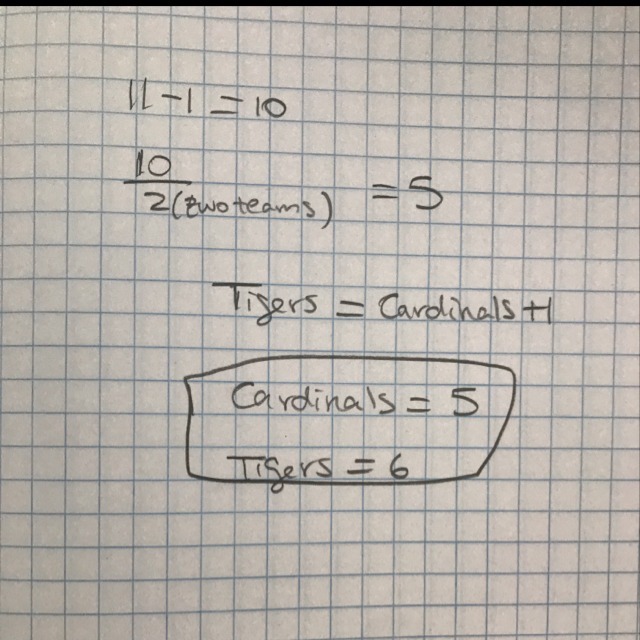 11-1=10
10
2(two teams) =5
Tigers = Cardinals +1
Cardinals = 5
Tigers = 6